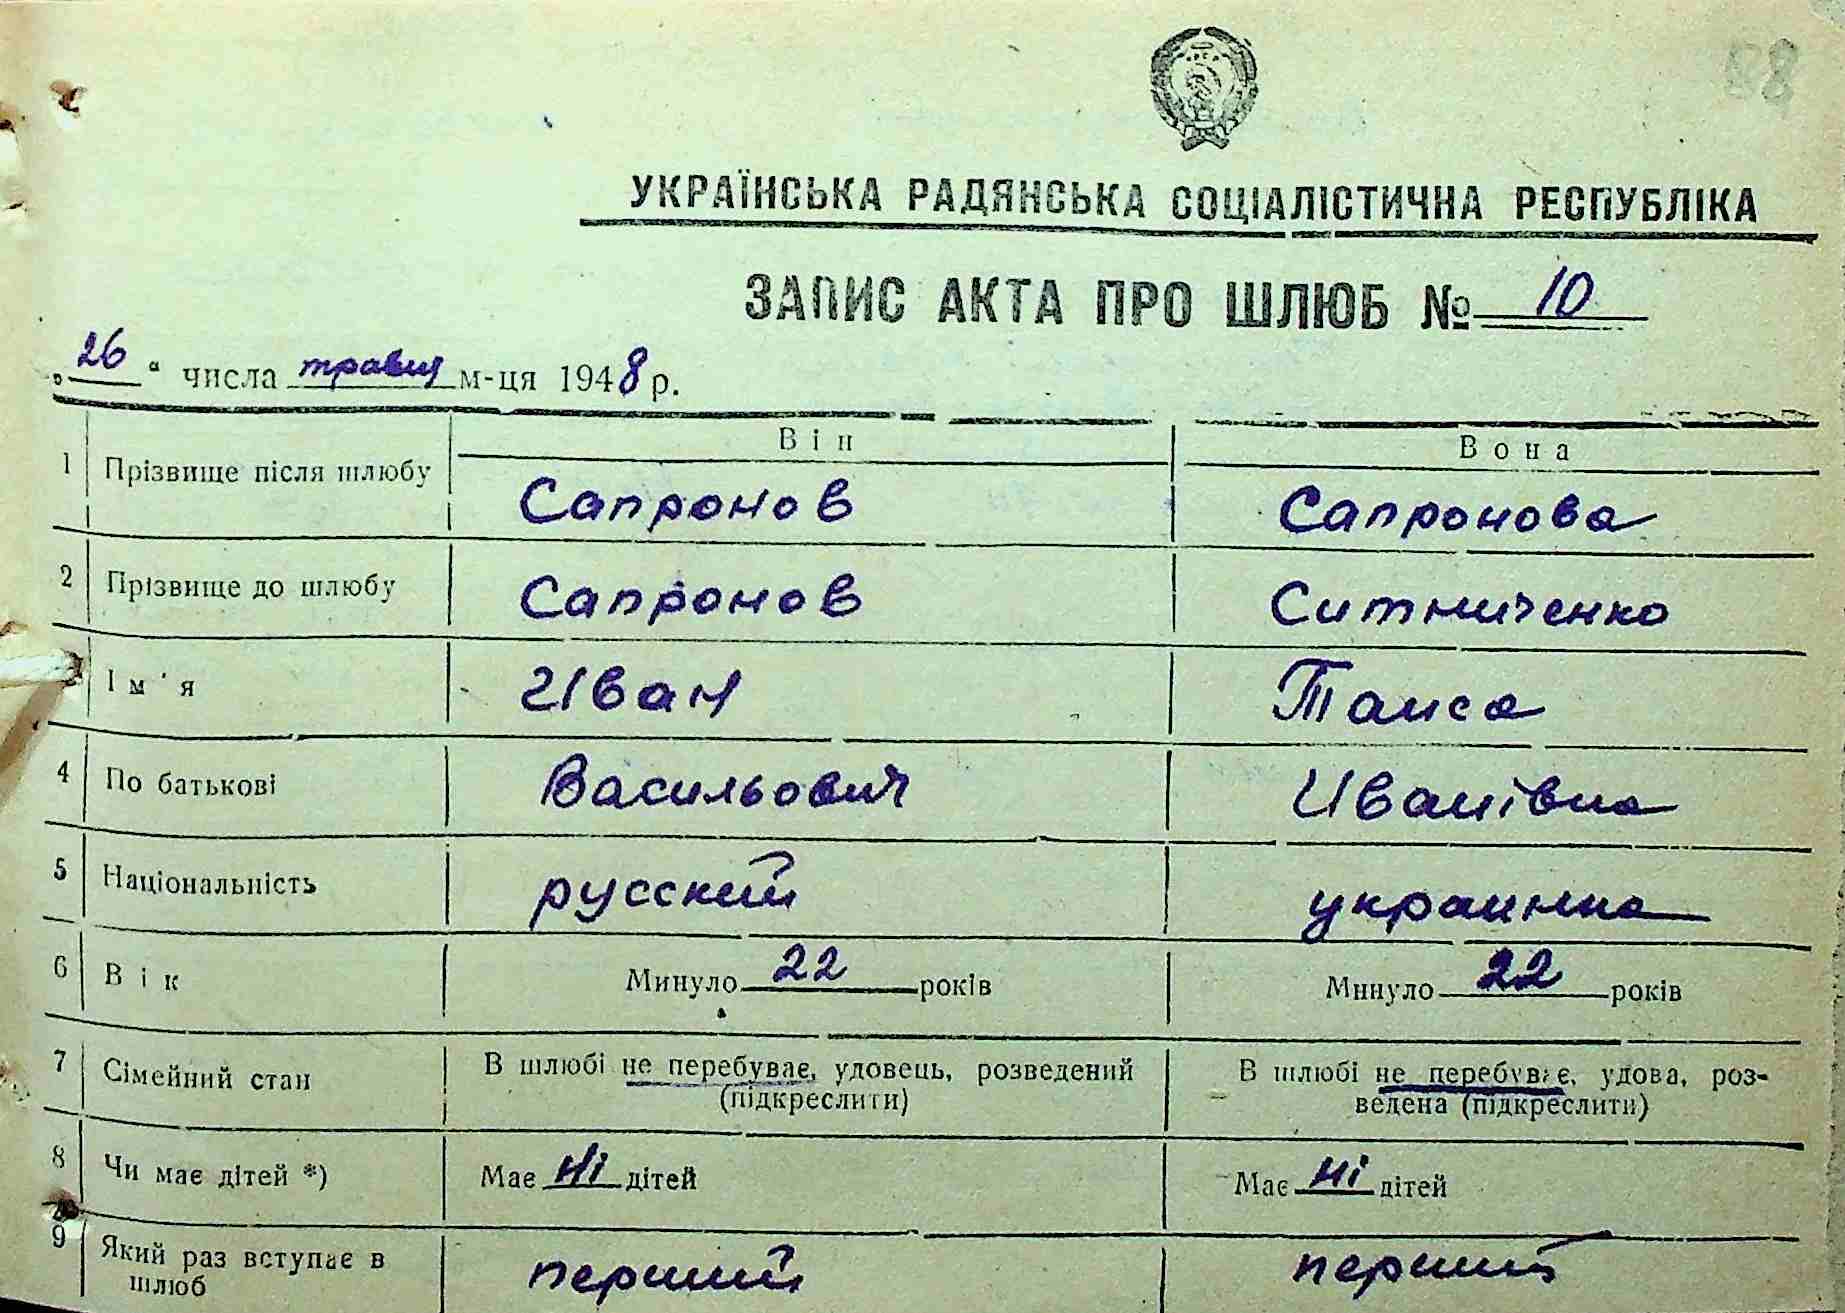 88
УКРАЇНСЬКА РАДЯНСЬКА СОЦІАЛІСТИЧНА РЕСПУБЛІКА
ЗАПИС АКТА ПРО ШЛЮБ № 10
„26“ числа травня м-ця 1948 р.
Він Вона
1 Прізвище після шлюбу Сапронов Сапронова
2 Прізвище до шлюбу Сапронов Ситниченко
Ім'я Иван Таиса
4 По батькові Васильович Иванівна
5 Національність русский украинка
6 Вік Минуло 22 років Минуло 22 років
7 Сімейний стан В шлюбі не перебуває, удовець, розведений В шлюбі не перебуває, удова, роз-
(підкреслити) ведена (підкреслити)
8 Чи має дітей *) Має ні дітей Має ні дітей
9 Який раз вступає в перший перший
шлюб